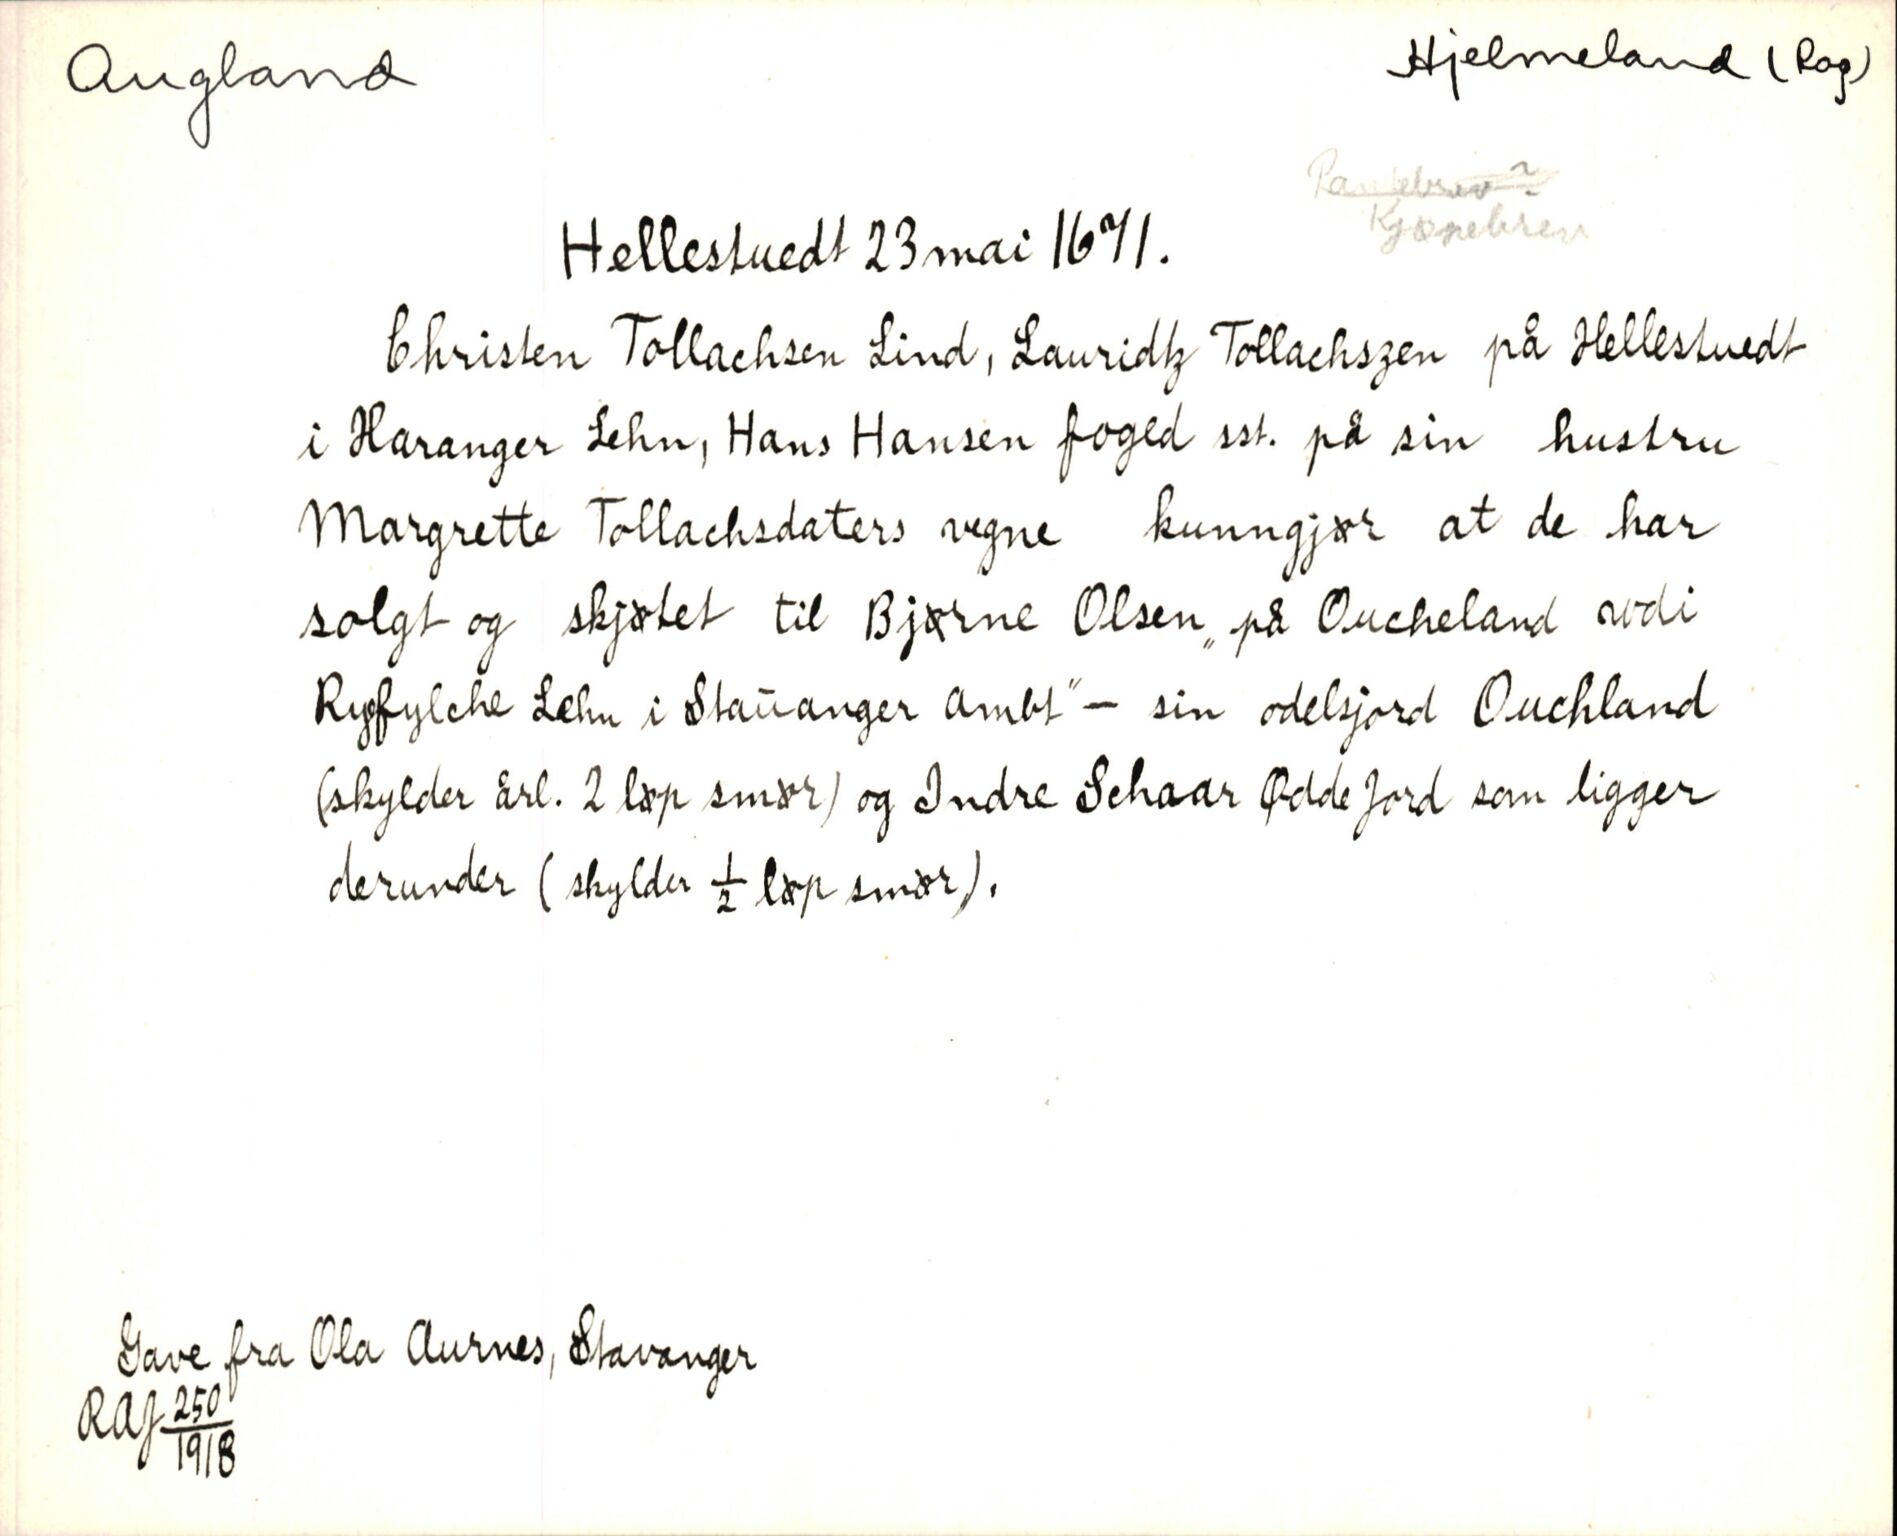 Augland
Hjelmeland (Rog)
Pantebrev?
Kjøpebrev
Hellestuedt 23 mai 1671.
Christen Tollachsen Lind, Lauridtz Tollachszen på Hellestuedt
i Haranger Lehn, Hans Hansen foged sst. på sin hustru
Margrette Tollachsdaters vegne kunngjør at de har
solgt og skjøtet til Bjørne Olsen „på Oucheland udi
Ryfylche Lehn i Staŭanger Ambt" – sin odelsjord Ouchland
(skylder årl. 2 løp smør) og Indre Schaar Ødde Jord som ligger
derunder (skylder 1/2 løp smør).
Gave fra Ola Aurnes, Stavanger
RAJ 250/1918